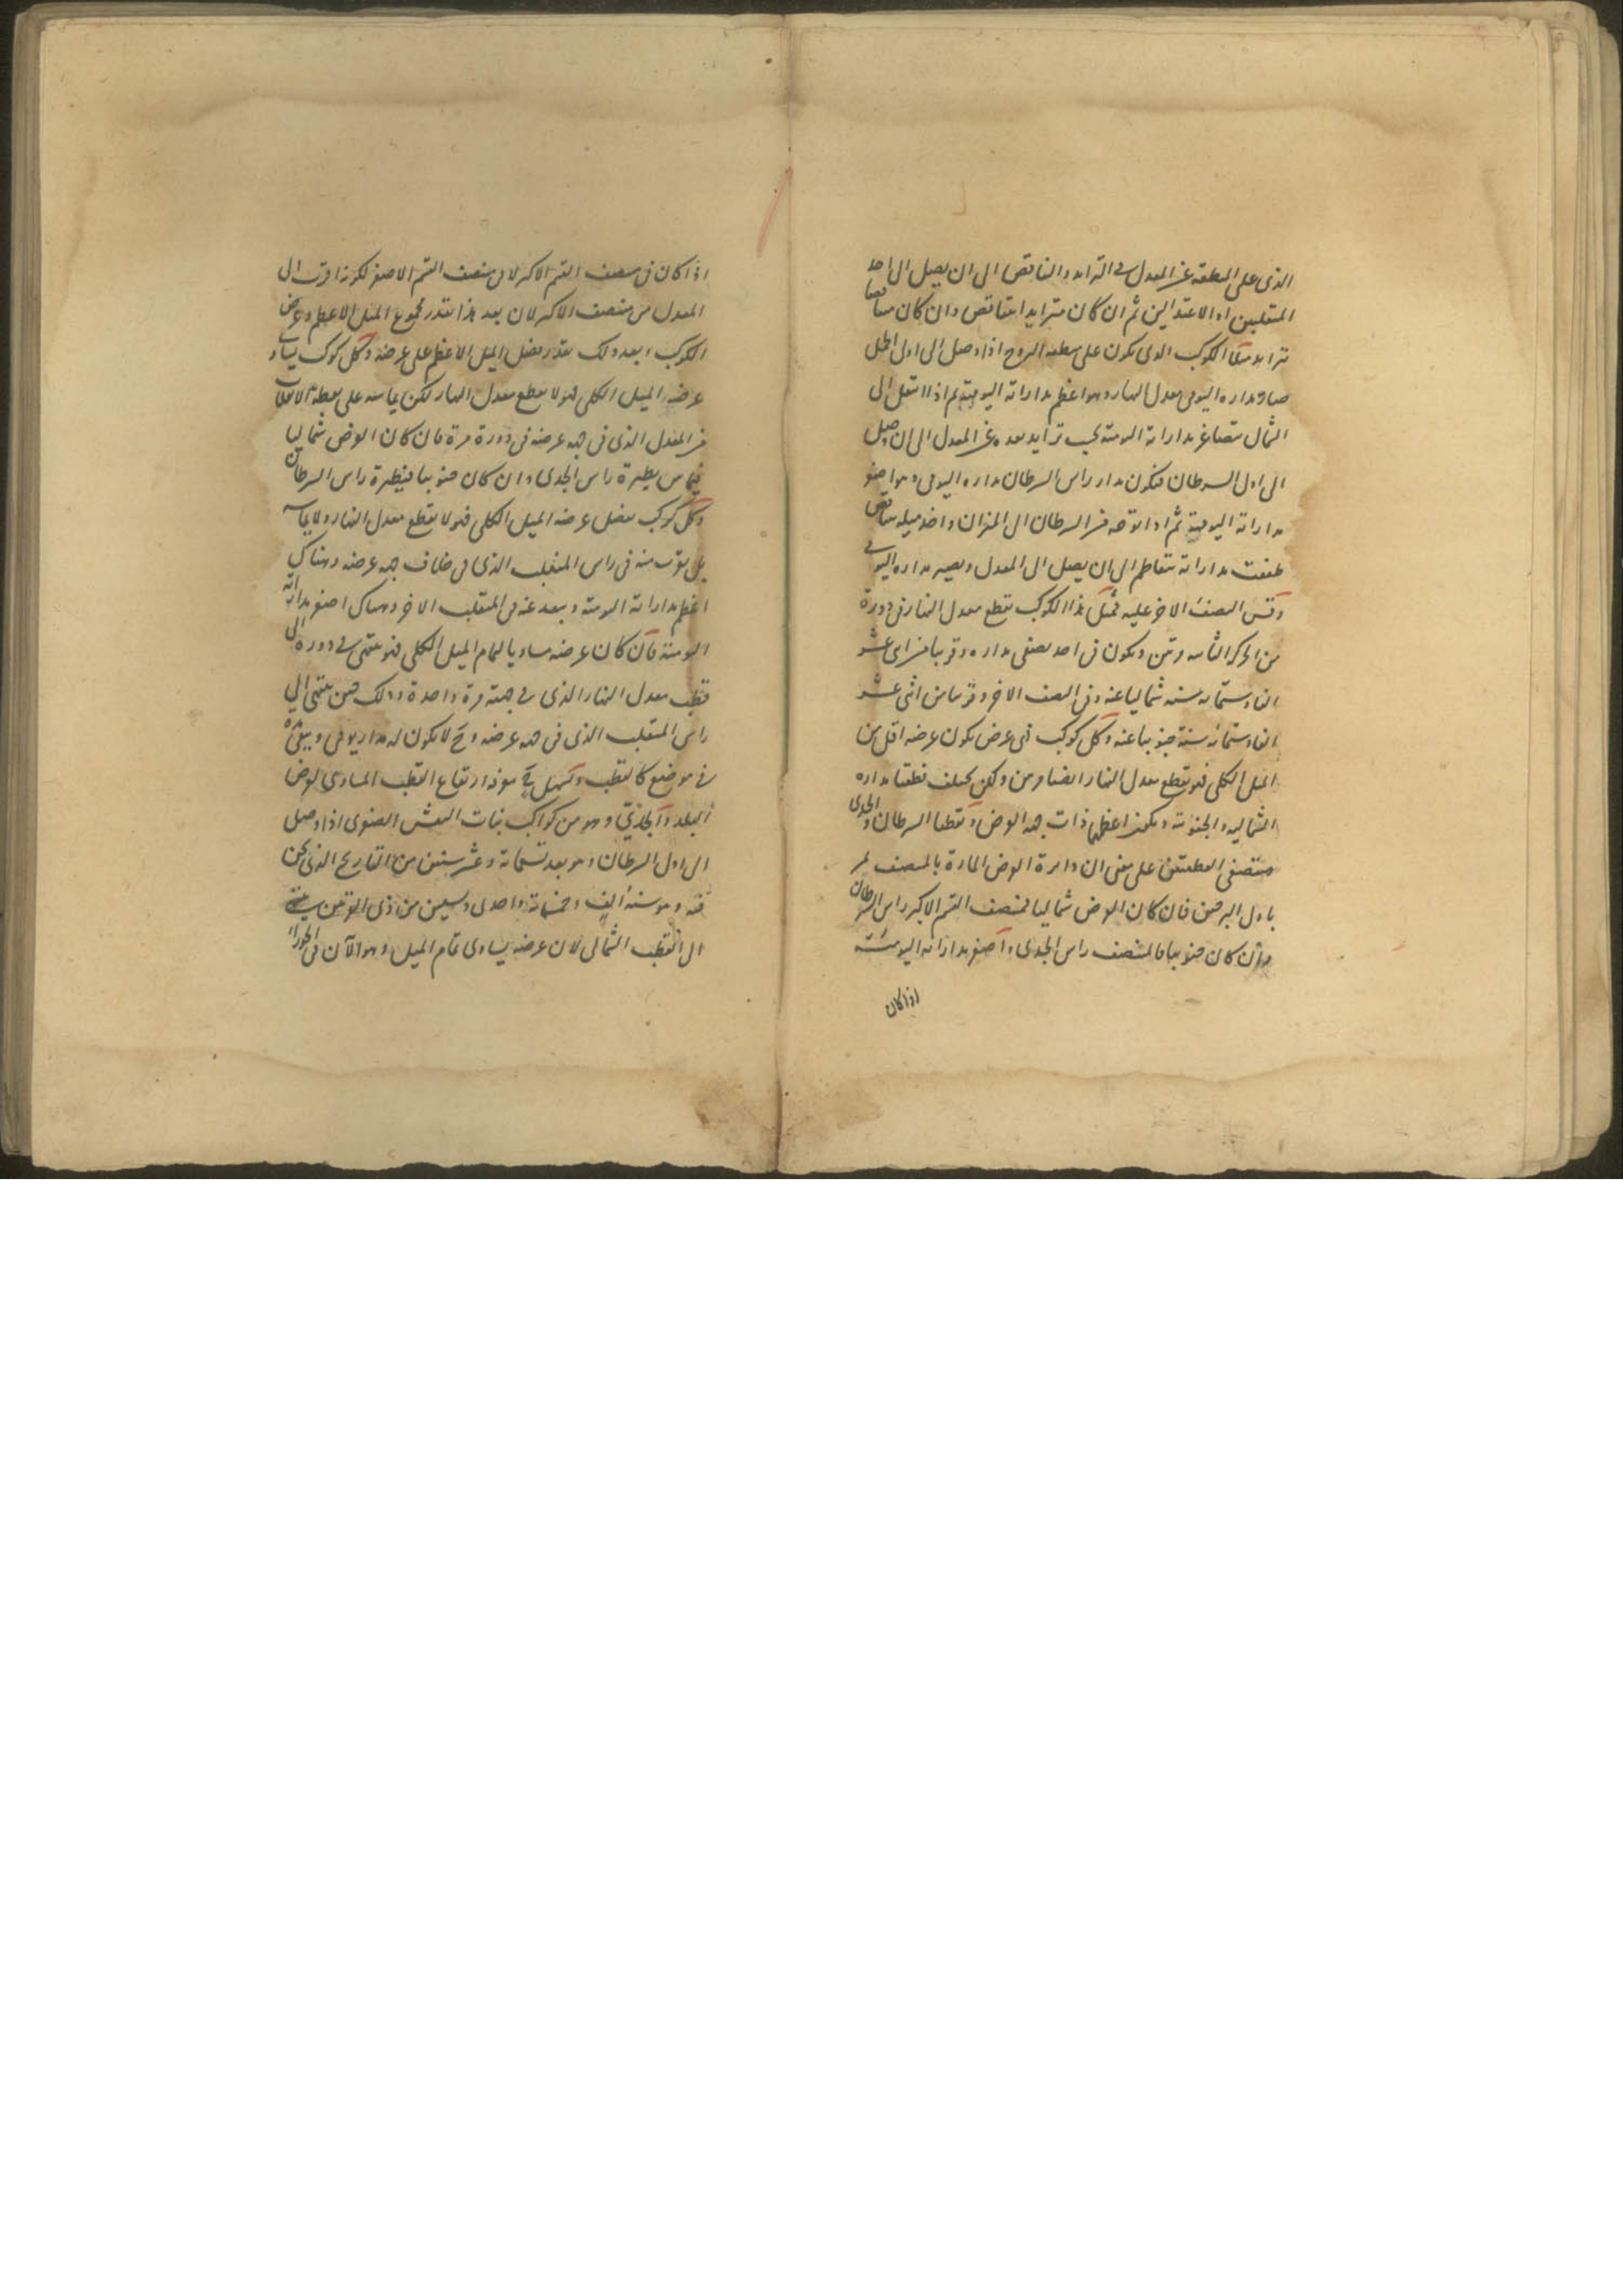 الذى على المنطقة عن المعدل فى التزايد والتناقص الى ان يصل الى احد
المنقلبين او الاعتدالين ثم ان كان متزايدا يتناقص وان كان متناقصا
يتزايد مثلا الكوكب الذى يكون على منطقة البروج اذا وصل الى اول الحمل
صار مداره اليومى معدل النهار وهو اعظم مداراته اليومية ثم اذا انتقل الى
الشمال يتصاغر مداراته اليومية بحسب تزايد بعده عن المعدل الى ان وصل
الى اول السرطان فيكون مدار راس السرطان مداره اليومى وهو اصغر
مداراته اليومية ثم اذا توجه من السرطان الى الميزان واخذ ميله يتناقص
طفقت مداراته تتعاظم الى ان يصل الى المعدل ويصير مداره اليومى
وقس النصف الاخر عليه فمثل هذا الكوكب يقطع معدل النهار فى دورة
من الحركة الثانية مرتين ويكون فى احد نصفى مداره وقريبا من اثنى عشر
الفا وستمائة سنة شماليا عنه وفى النصف الاخر وقريبا من اثنى عشر
الفا وستمائة سنة جنوبيا عنه وكل كوكب ذى عرض يكون عرضه اقل من
الميل الكلى فهو يقطع معدل النهار ايضا مرتين ولكن يختلف قطعتا مداره
الشمالية والجنوبية ويكون اعظمهما ذات جهة العرض ونقطتا السرطان والجدى
منتصفى القطعتين على معنى ان دائرة العرض المارة بالمنتصف تمر
باول البرجين فان كان العرض شماليا فمنتصف القسم الاكبر راس السرطان
وان كان جنوبيا فالمنتصف راس الجدى واصغر مداراته اليومية
اذا كان
اذا كان فى منتصف القسم الاكبر لا فى منتصف القسم الاصغر لكونه اقرب الى
المعدل من منتصف الاكبر لان بعد هذا بقدر مجموع الميل الاعظم وعرض
الكوكب وبعد ذلك بقدر فضل الميل الاعظم على عرضه وكل كوكب يساوى
عرضه الميل الكلى فهو لا يقطع معدل النهار لكن يماسه على نقطة الانقلاب
من المعدل الذى فى جهة عرضه فى دورة مرة فان كان العرض شماليا
فيماس بنظيرة راس الجدى وان كان جنوبيا فبنظيرة راس السرطان
وكل كوكب يفضل عرضه الميل الكلى فهو لا يقطع معدل النهار ولا يماسه
بل يقرب منه فى راس المنقلب الذى فى خلاف جهة عرضه وهناك
اعظم مداراته اليومية ويبعد عنه فى المنقلب الاخر وهناك اصغر مداراته
اليومية فان كان عرضه مساويا لتمام الميل الكلى فهو ينتهى فى دوره الى
قطب معدل النهار الذى فى جهته مرة واحدة وذلك حين ينتهى الى
راس المنقلب الذى فى جهة عرضه وح لا يكون له مدار يومى ويبقى
فى موضع كالقطب ويسهل ح معرفة ارتفاع القطب المساوى لعرض
البلد والجدى وهو من كواكب بنات النعش الصغرى اذا وصل
الى اول السرطان وهو بعد تسعمائة وعشر سنين من التاريخ الذى نحن
فيه وهو سنة الف وخمسمائة واحدى وسبعين من ذى القرنين ينتهى
الى القطب الشمالى لان عرضه يساوى تمام الميل وهو الآن فى الجوزاء